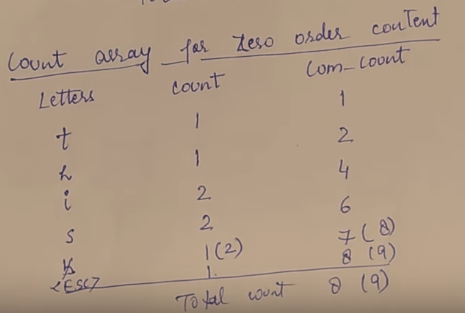 Count array for zero order content
Letters count Cum-count
t 1 1
h 1 2
i 2 4
s 2 6
b 1(2) 7(8)
<ESC> 1 8 (9)
Total count 8 (9)